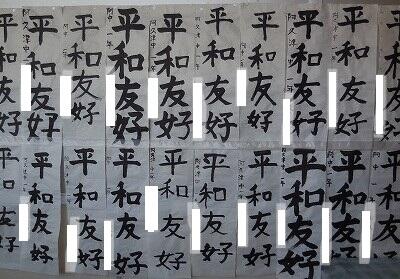 平和友好
平和友好
平和友好
阿久津中一年
平和友好
平和友好
平和友好
平和友好
平和友好
阿中一年
平和友好
平和友好
平和友好
平和友好
平和友好
平和友好
平和友好
平和友好
平和友好
平和友好
平和友好
平和友好